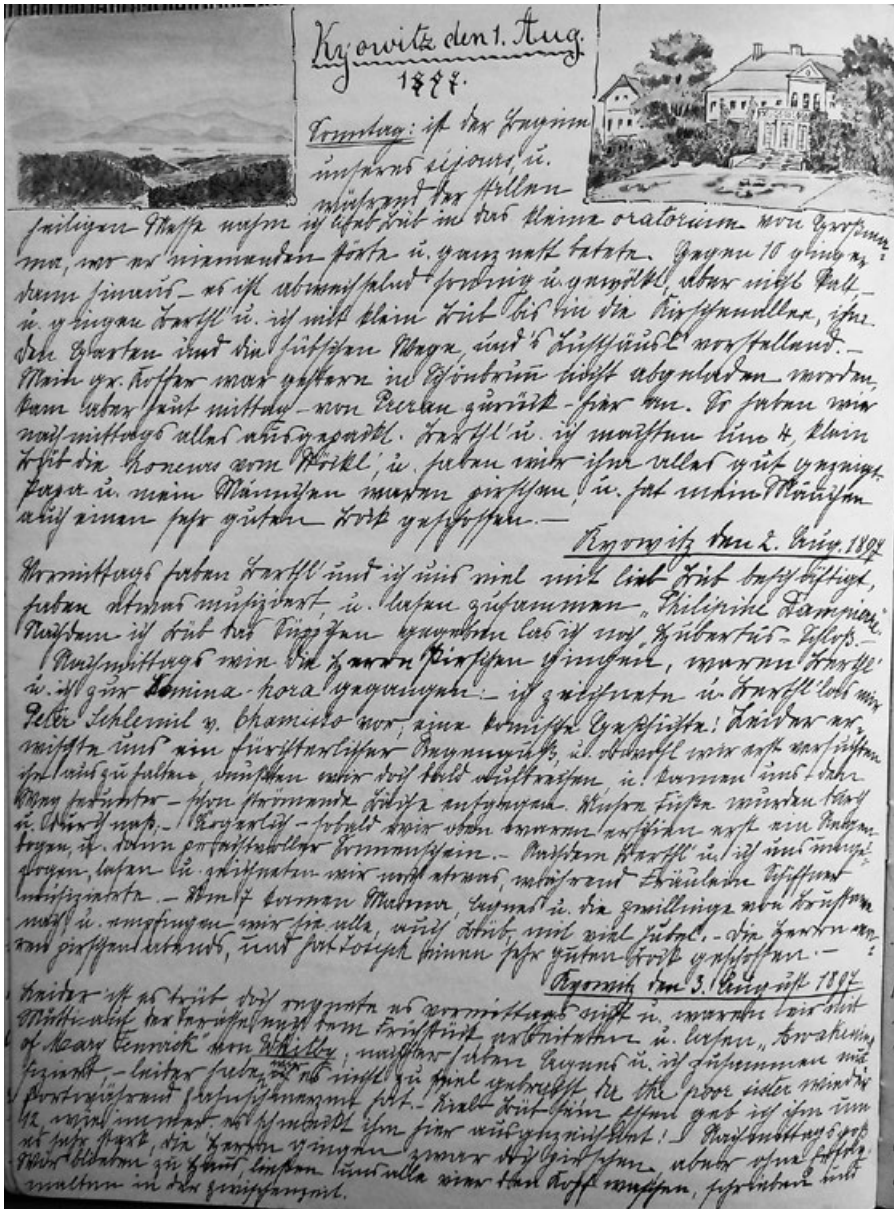 Kyowitz den 1. Aug.
1897.
Sonntag: ist der Beginn
unseres séjours, u.
während der stillen
heiligen Messe nahm ich lieb Bub in das kleine oratorium von Großma=
ma, wo er niemanden störte u. ganz nett betete. Gegen 10 gingen
dann hinaus – es ist abwechselnd sonnig u. gewölkt, aber nicht kalt –
u. gingen Berthl u. ich mit klein Bub bis in die Kirschenallee, ihm
den Garten und die hübschen Wege, und's Lusthäusl vorstellend. –
Mein gr. Koffer war gestern in Schönbrunn nicht abgeladen worden,
kam aber heut mittag – von Prerau zurück – hier an. So haben wir
nachmittags alles ausgepackt. Berthl u. ich machten um 4, klein
Bub die honeurs vom Stöckl, u. haben wir ihm alles gut gezeigt.
Papa u. mein Männchen waren pirschen, u. hat mein Männchen
auch einen sehr guten Bock geschossen. –
Kyowitz den 2. Aug. 1897
Vormittags haben Berthl und ich uns viel mit lieb Bub beschäftigt,
haben etwas musiziert, u. lasen zusammen „Philipine
Nachdem ich Bub das Süppchen gegeben las ich noch Hubertus-Schloß. –
Nachmittags wie die Herrn pirschen gingen, waren Berthl
u. ich zur hora gegangen: – ich zeichnete u. Berthl las mir
Peter Schlemil v. Chamisso vor, eine komische Geschichte! Leider er-
wischte uns ein fürchterlicher Regenguß, u. obwohl wir erst versuchten
ihn auszuhalten, mußten wir doch bald aufbrechen, u. kamen uns den
Weg herunter – schon strömende Bäche entgegen. Unsre Füße wurden durch
u. durch naß. – Ärgerlich – sobald wir oben waren erschien erst ein Regen
bogen, u. dann prachtvoller Sonnenschein. – Nachdem Berthl u. ich uns umge-
zogen, lasen u. zeichneten wir noch etwas, während Fräulein Schiffner
musizierte. – Um 7 kamen Mama, Agnes u. die zwillinge von
nach u. empfingen wir sie alle, auch Bub, mit viel Jubel. – Die Herrn wa=
ren pirschen abends, und hat Joseph einen sehr guten Bock geschossen. –
Kyowitz den 3. August 1897
Leider ist es trüb doch regnete es vormittags nicht u. waren wir mit
Mutti auf der Terasse nach dem Frühstück arbeiteten u. lasen „Awakening
of Mary Fenwick" von Whitby, nachher haben Agnes u. ich zusammen mu
siziert, – leider haben wir es nicht zu viel da the poor sister wieder
fortwährend hat. – Lieb Bub sein Essen geb ich ihm um
12, wie immer es schmeckt ihm hier ausgezeichnet! – Nachmittags goß
es sehr stark, die Herrn gingen zwar doch pirschen, aber ohne Erfolg.
Wir blieben zu Haus, ließen uns alle vier den Kopf waschen, schrieben und
malten in der zwischenzeit.